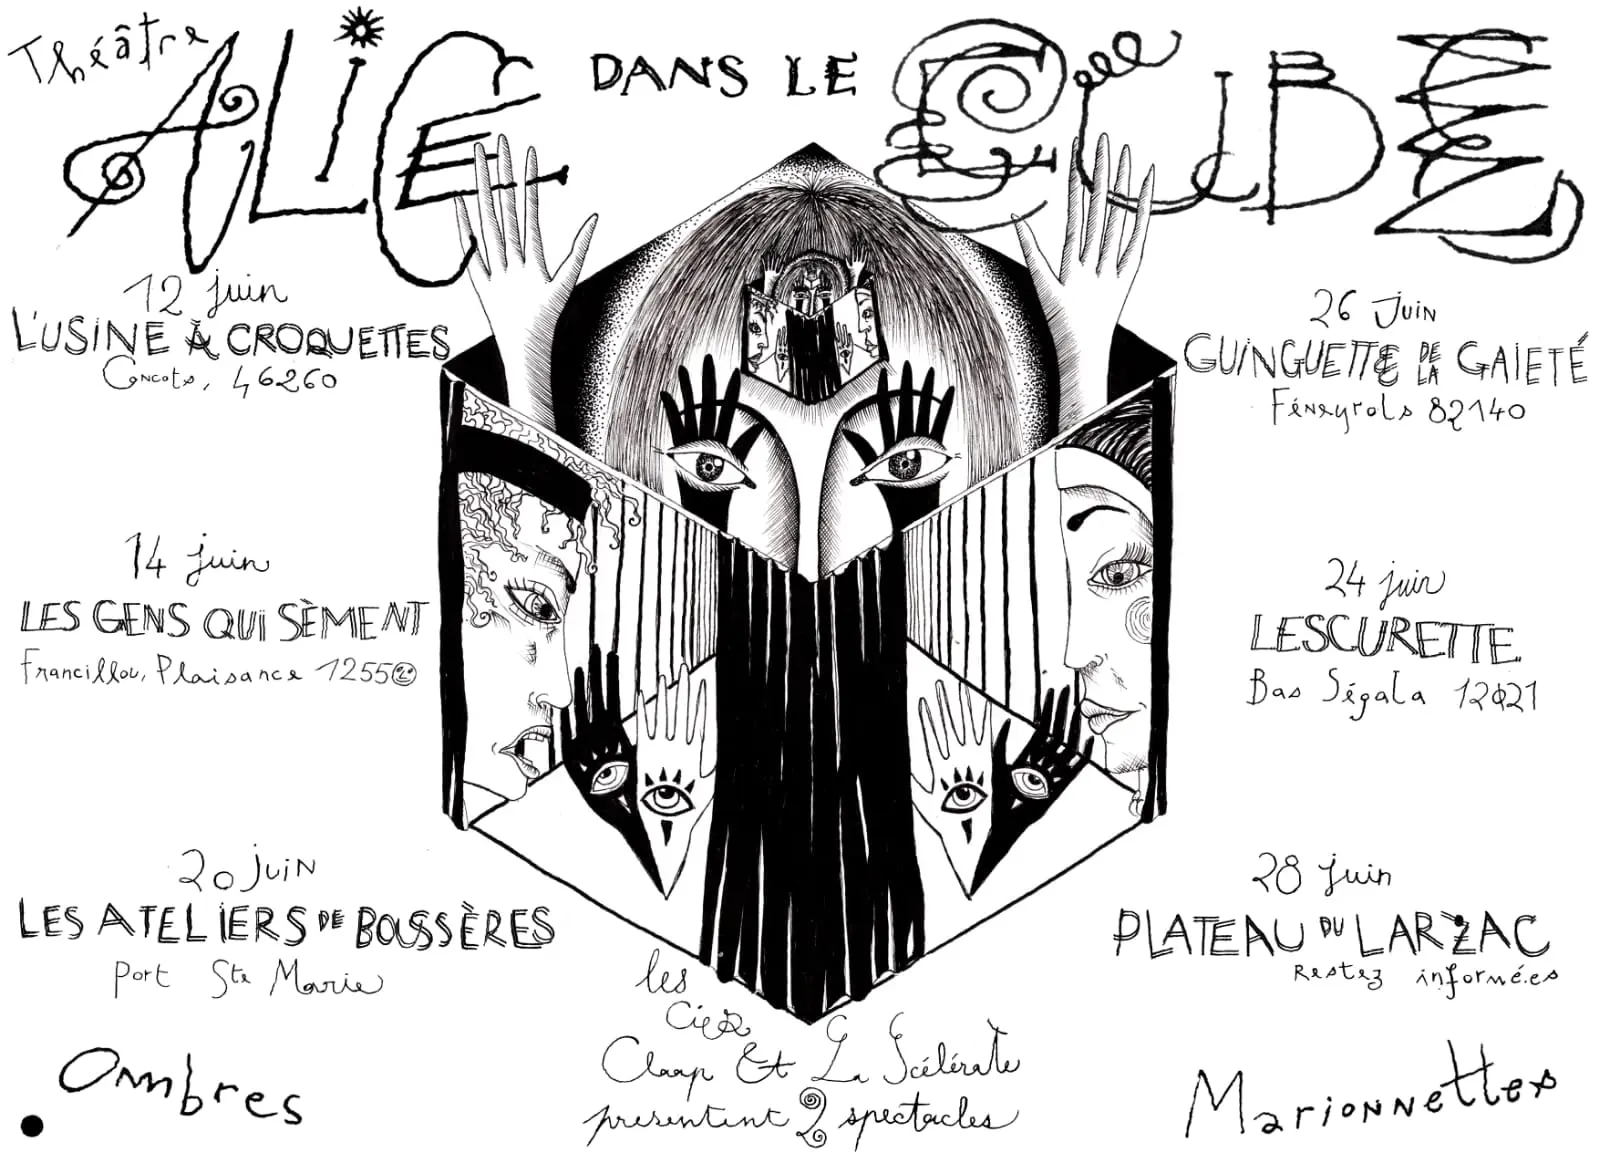 Théâtre
ALICE DANS LE CUBE
12 juin
L'USINE À CROQUETTES
Concots, 46260
14 juin
LES GENS QUI SÈMENT
Francillou, Plaisance 12550
20 juin
LES ATELIERS DE BOUSSÈRES
Port Ste Marie
26 Juin
GUINGUETTE DE LA GAIETÉ
Féneyrols 82140
24 juin
LESCURETTE
Bas Ségala 12021
28 juin
PLATEAU DU LARZAC
Restez informé.es
les
Cies
Claap Et La Scélérate
presentent 2 spectacles
Ombres
Marionnettes